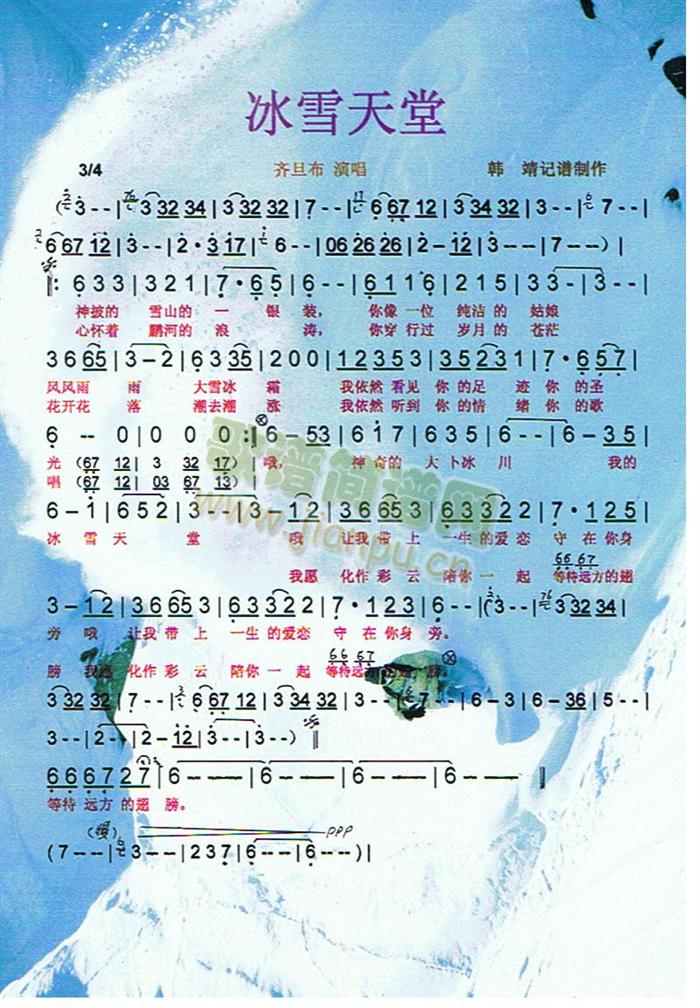 冰雪天堂
3/4 齐旦布 演唱 韩 靖记谱制作
(3 - - | 3 32 34 | 3 32 32 | 7 - - | 6 67 12 | 3 34 32 | 3 32 32 | 7 - - |
6 67 12 | 3 - - | 2 · 3 17 | 6 - - | 06 26 26 | 2 - 12 | 3 - - | 7 - - ) |
‖: 6 3 3 | 3 2 1 | 7 · 6 5 | 6 - - | 6 1 1 6 | 2 1 5 | 3 3 - | 3 - - |
神披的 雪山的 一 银 装, 你像 一位 纯洁 的 姑娘
心怀着 鹏河的 浪 涛, 你穿 行过 岁月 的 苍茫
3 6 65 | 3 - 2 | 6 3 35 | 2 0 0 | 1 2 35 3 | 35 23 1 | 7 · 6 5 7 |
风风雨 雨 大雪冰 霜 我依然 看见 你 的 足 迹 你 的 圣
花开花 落 潮去潮 涨 我依然 听到 你 的 情 绪 你 的 歌
6 - - 0 | 0 0 0 :‖ 6 - 53 | 6 1 7 | 6 3 5 | 6 - - | 6 - 35 |
光 (67 12 | 3 32 17 | 哦, 神 奇的 大 卜冰 川 我的
唱 (67 12 | 03 67 13) |
6 - 1 | 6 5 2 | 3 - - | 3 - 12 | 3 6 65 3 | 6 3 32 2 | 7 · 12 3 |
冰 雪 天 堂 哦 让我 带 上 一生 的爱恋 守 在你 身
66 67
我愿 化作 彩 云 陪你 一 起 等待远方的翅
3 - 12 | 3 6 65 3 | 6 3 32 2 | 7 · 12 3 | 6 - - | (3 - - | 3 32 34 |
旁 哦 让我 带 上 一生 的爱恋 守 在你身 旁。
66 67
膀 我愿 化作 彩 云 陪你 一 起 等待远方的翅 膀。
3 32 32 | 7 - - | 6 67 12 | 3 34 32 | 3 32 32 | 7 - - | 6 - 3 | 6 - 36 | 5 - - |
3 - - | 2 - - | 2 - 12 | 3 - - | 3 - - ) ‖
6 6 6 7 2 7 | 6 - - - | 6 - - - | 6 - - - | 6 - - - ‖
等待 远方 的翅 膀。
ppp
( 7 - - | 3 - - | 2 3 7 | 6 - - - | 6 - - - ) |
歌谱简谱网
www.jianpu.cn